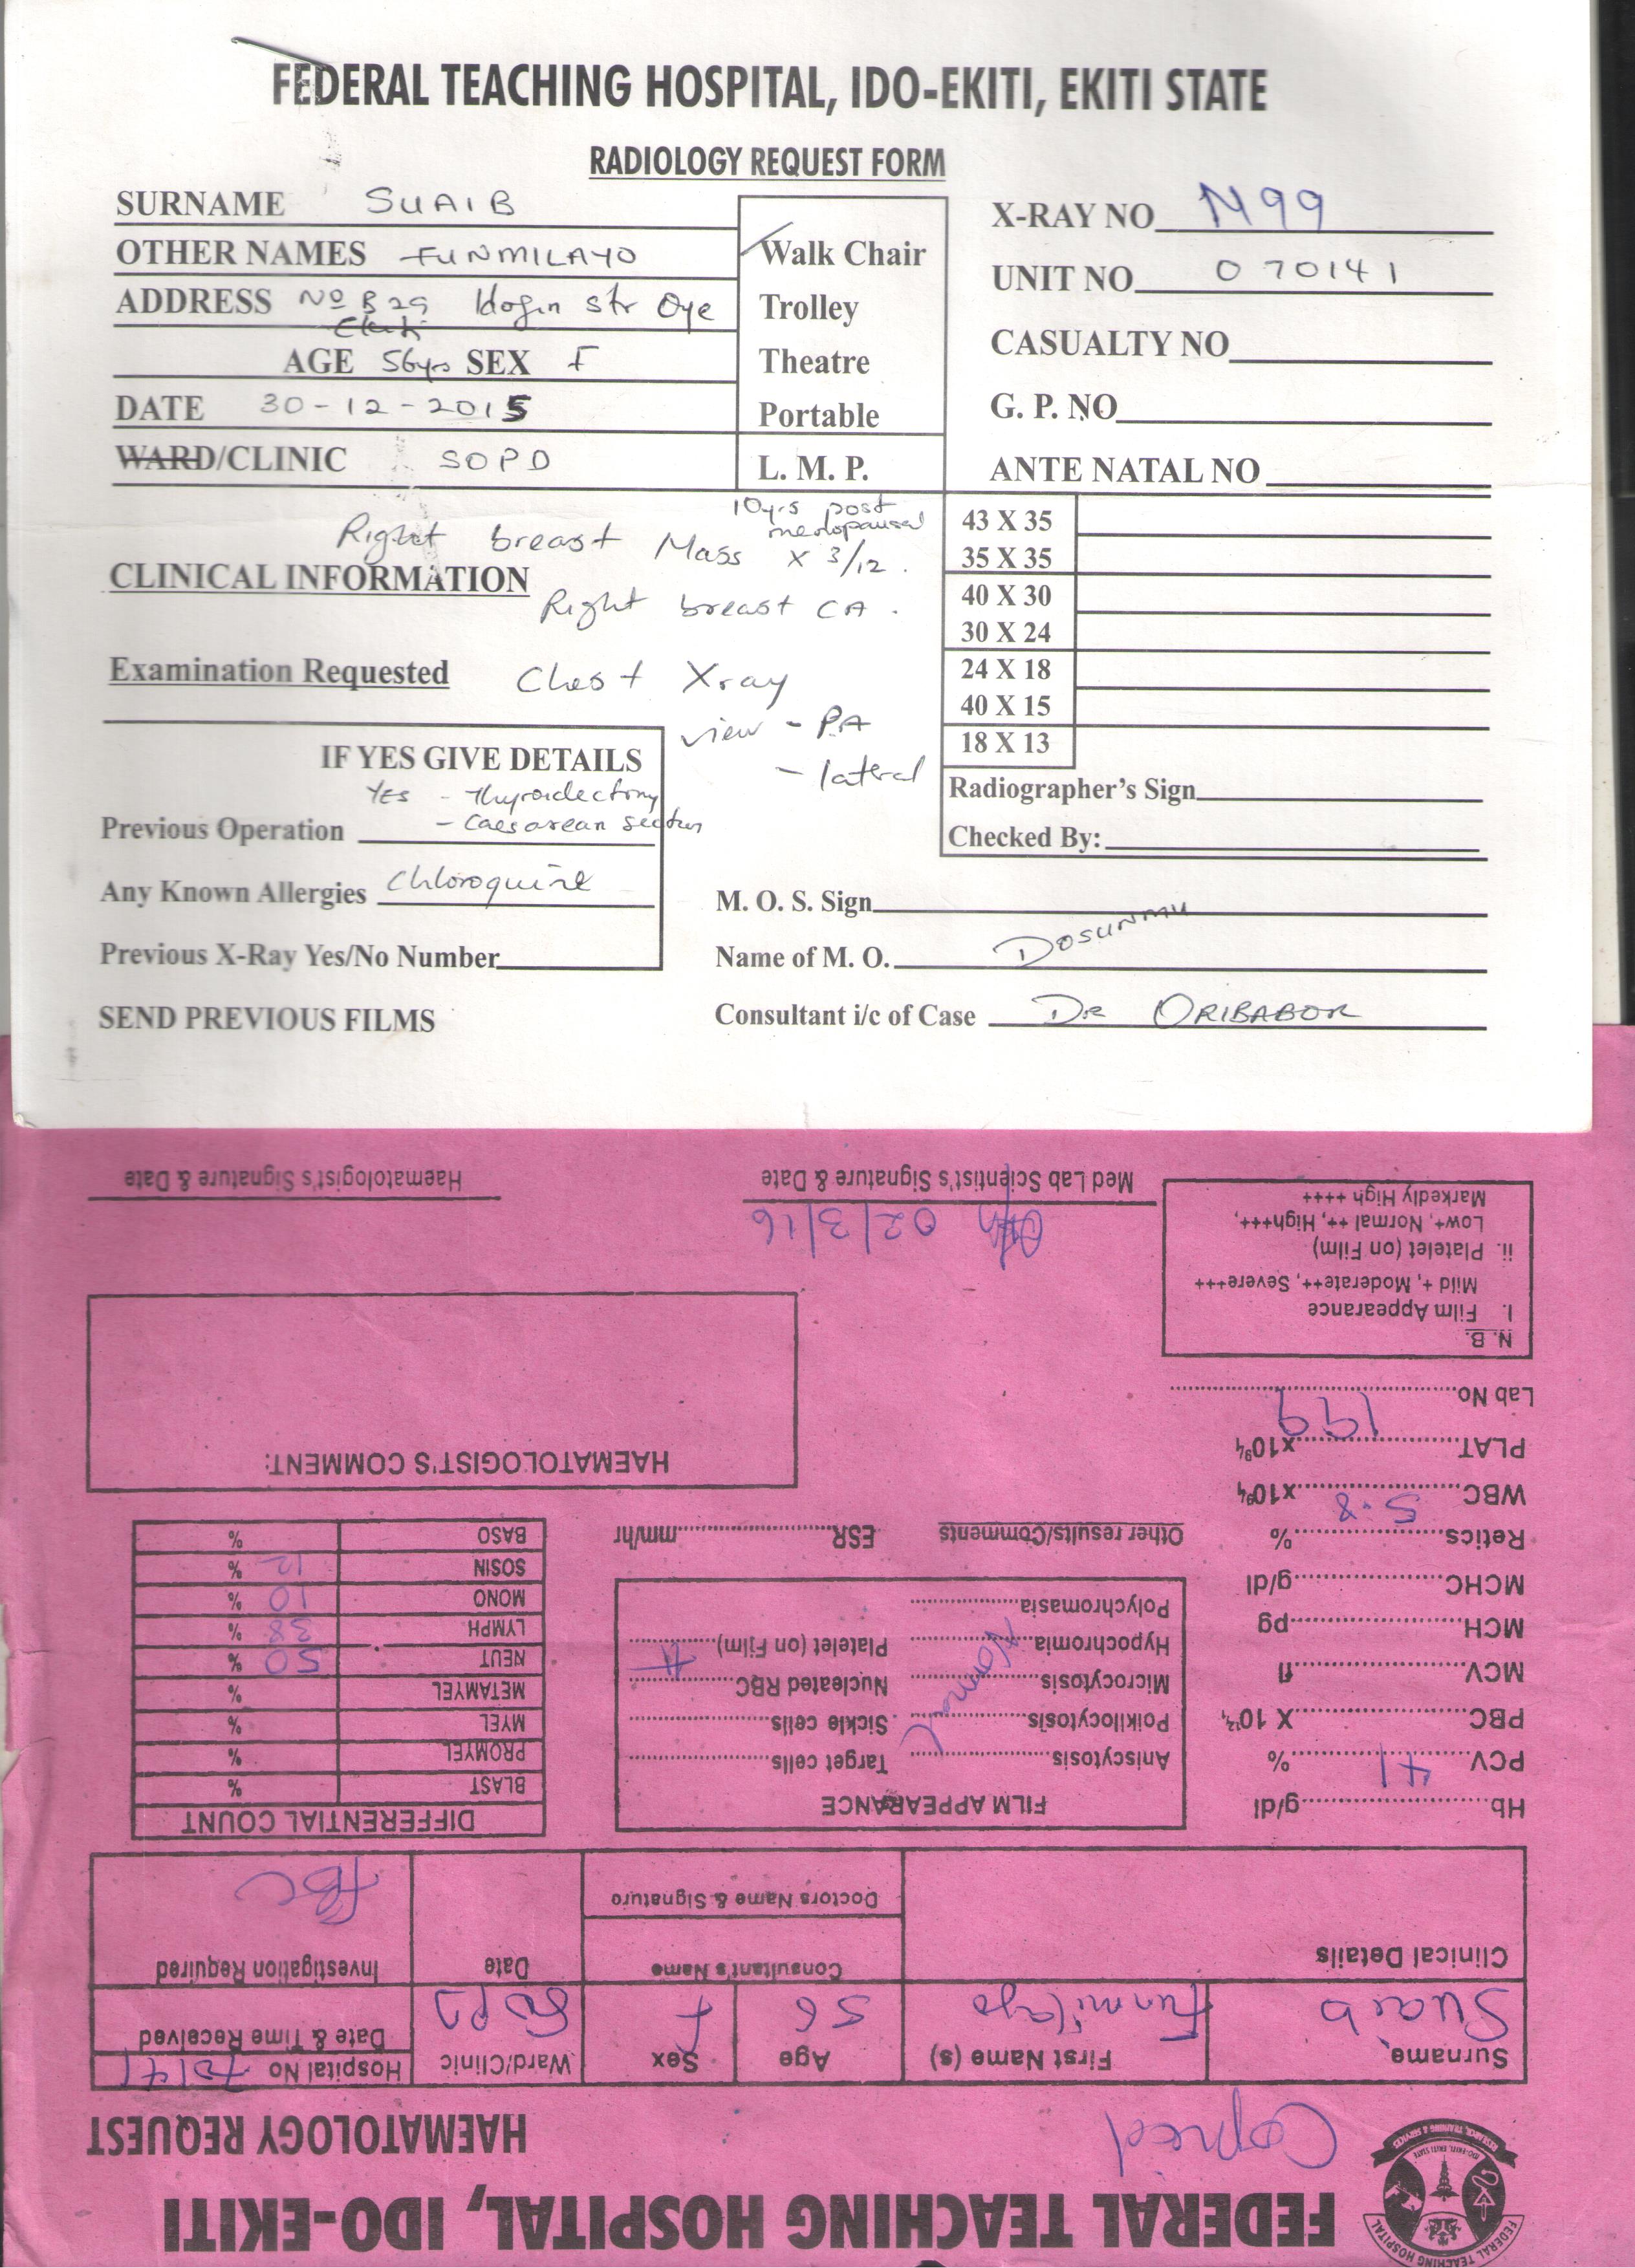 FEDERAL TEACHING HOSPITAL, IDO-EKITI, EKITI STATE
RADIOLOGY REQUEST FORM
SURNAME SUAIB
OTHER NAMES FUNMILAYO
ADDRESS No B29 Idogin str Oye
Ekiti
AGE 56yrs SEX F
DATE 30-12-2015
WARD/CLINIC SOPD
Walk Chair
Trolley
Theatre
Portable
L. M. P.
10yrs post
menopausal
X-RAY NO N99
UNIT NO 070141
CASUALTY NO
G. P. NO
ANTE NATAL NO
Right breast Mass x 3/12.
CLINICAL INFORMATION
Right breast CA.
Examination Requested Chest Xray
view - PA
- lateral
43 X 35
35 X 35
40 X 30
30 X 24
24 X 18
40 X 15
18 X 13
Radiographer's Sign
Checked By:
IF YES GIVE DETAILS
YES - Thyroidectomy
Previous Operation - Caesarean section
Any Known Allergies Chloroquine
Previous X-Ray Yes/No Number
SEND PREVIOUS FILMS
M. O. S. Sign
Name of M. O. DOSUNMU
Consultant i/c of Case DR ORIBABOR
FEDERAL TEACHING HOSPITAL, IDO-EKITI
Copied
HAEMATOLOGY REQUEST
Surname Suaib
First Name (s) Funmilayo
Age 56
Sex F
Ward/Clinic SOPD
Hospital No 70141
Date & Time Received
Clinical Details
Consultant's Name
Doctors Name & Signature
Date
Investigation Required
FBC
Hb g/dl
PCV 41 %
PBC X 10¹²/L
MCV fl
MCH pg
MCHC g/dl
Retics %
WBC 5.8 x10⁹/L
PLAT 199 x10⁹/L
Lab No
FILM APPEARANCE
Aniscytosis Target cells
Poikilocytosis Sickle cells
Microcytosis Nucleated RBC
Hypochromia Platelet (on Film)
Polychromasia
Normal
Other results/Comments ESR mm/hr
DIFFERENTIAL COUNT
BLAST %
PROMYEL %
MYEL %
METAMYEL %
NEUT 50 %
LYMPH 38 %
MONO 10 %
SOSIN 12 %
BASO %
HAEMATOLOGIST'S COMMENT:
N. B.
I. Film Appearance
Mild + Moderate++, Severe+++
ii. Platelet (on Film)
Low+, Normal ++, High+++,
Markedly High ++++
02/3/16
Med Lab Scientist's Signature & Date
Haematologist's Signature & Date